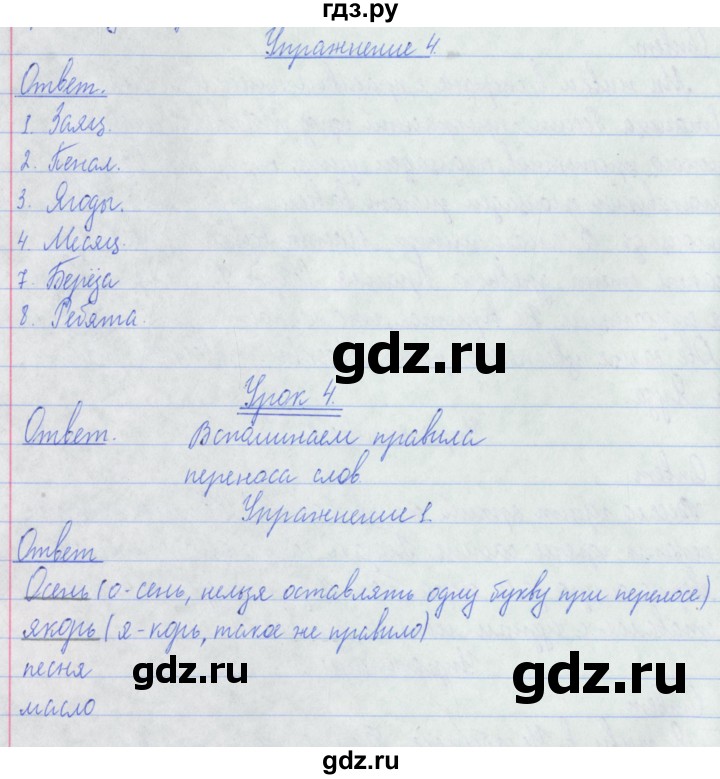 гдз.ру
Упражнение 4.
Ответ.
1. Заяц.
2. Пенал.
3. Ягоды.
4. Месяц.
7. Берёза
8. Ребята.
gdz.ru
Урок 4.
Ответ. Вспоминаем правила
переноса слов
Упражнение 1.
Ответ
Осень (о-сень, нельзя оставлять одну букву при переносе)
якорь (я-корь, такое же правило)
песня
gdz.ru gdz.ru
масло
gdz.ru